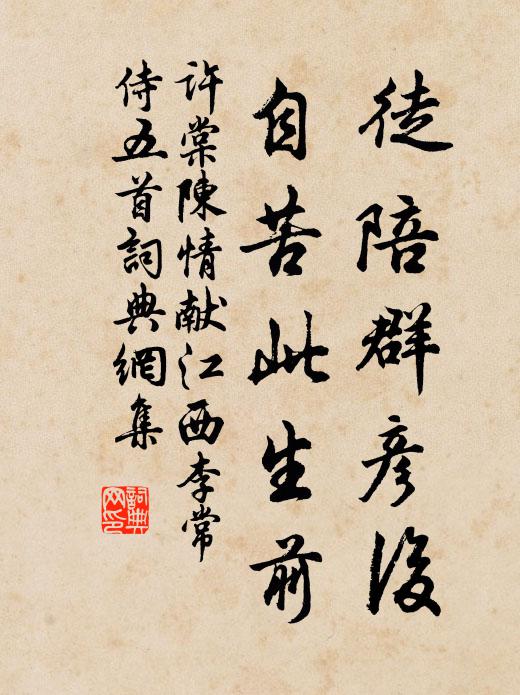 徒陪群彦後
自苦此生前
許棠陳情献江西李常
侍五首詞典網集
詞典
网印